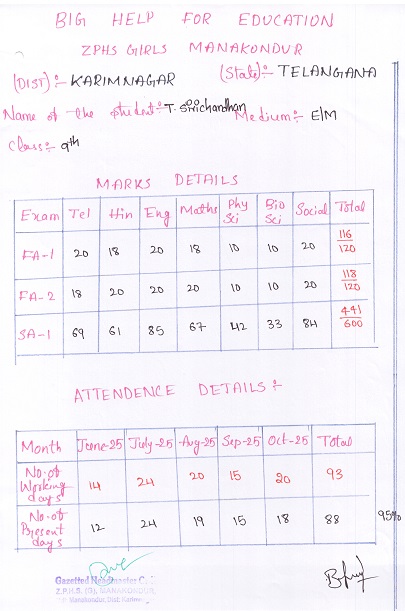 BIG HELP FOR EDUCATION
ZPHS GIRLS MANAKONDUR
(DIST) :- KARIMNAGAR (State) :- TELANGANA
Name of the student :- T. Srichandhan Medium :- E/M
Class :- 9th
MARKS DETAILS
Exam Tel Hin Eng Maths Phy Sci Bio Sci Social Total
FA-1 20 18 20 18 10 10 20 116/120
FA-2 18 20 20 20 10 10 20 118/120
SA-1 69 61 85 67 42 33 84 441/600
ATTENDENCE DETAILS :-
Month June-25 July-25 Aug-25 Sep-25 Oct-25 Total
No. of Working days 14 24 20 15 20 93
No. of Present days 12 24 19 15 18 88 95%
Gazetted Headmaster
Z.P.H.S. (G), MANAKONDUR